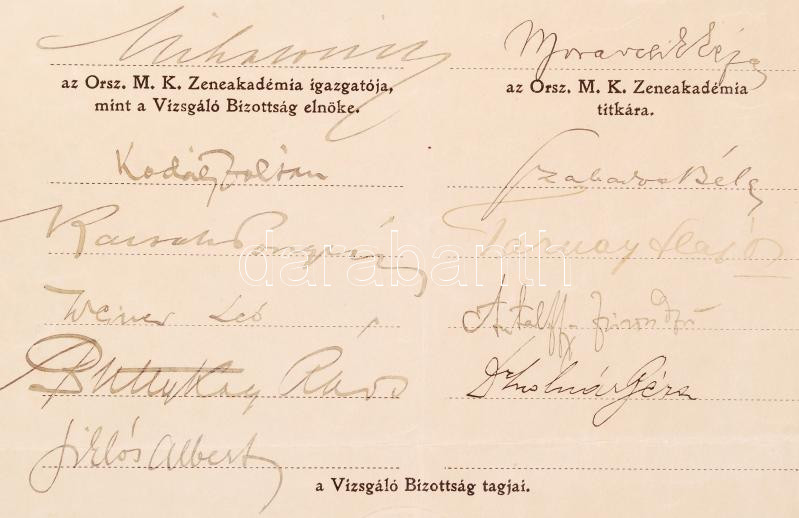 Mihalovich Moravcsik Géza
az Orsz. M. K. Zeneakadémia igazgatója, az Orsz. M. K. Zeneakadémia
mint a Vizsgáló Bizottság elnöke. titkára.
Kodály Zoltán Szabados Béla
Kacsoh Pongrác Tarnay Alajos
darabanth
Weiner Leó Antalffy-Zsiross Dezső
Buttykay Ákos Dr Molnár Géza
Siklós Albert
a Vizsgáló Bizottság tagjai.